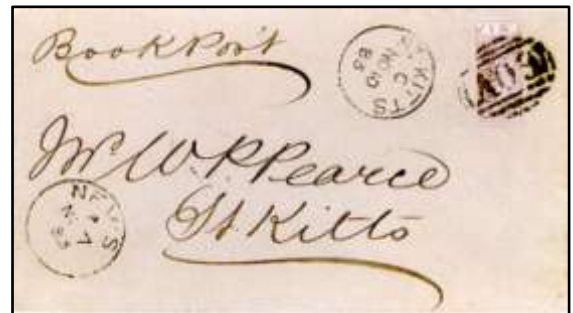 Book Post
ST KITTS
C
NO 10
83
A09
Mr W P Pearce
St Kitts
NEVIS
A
7
83